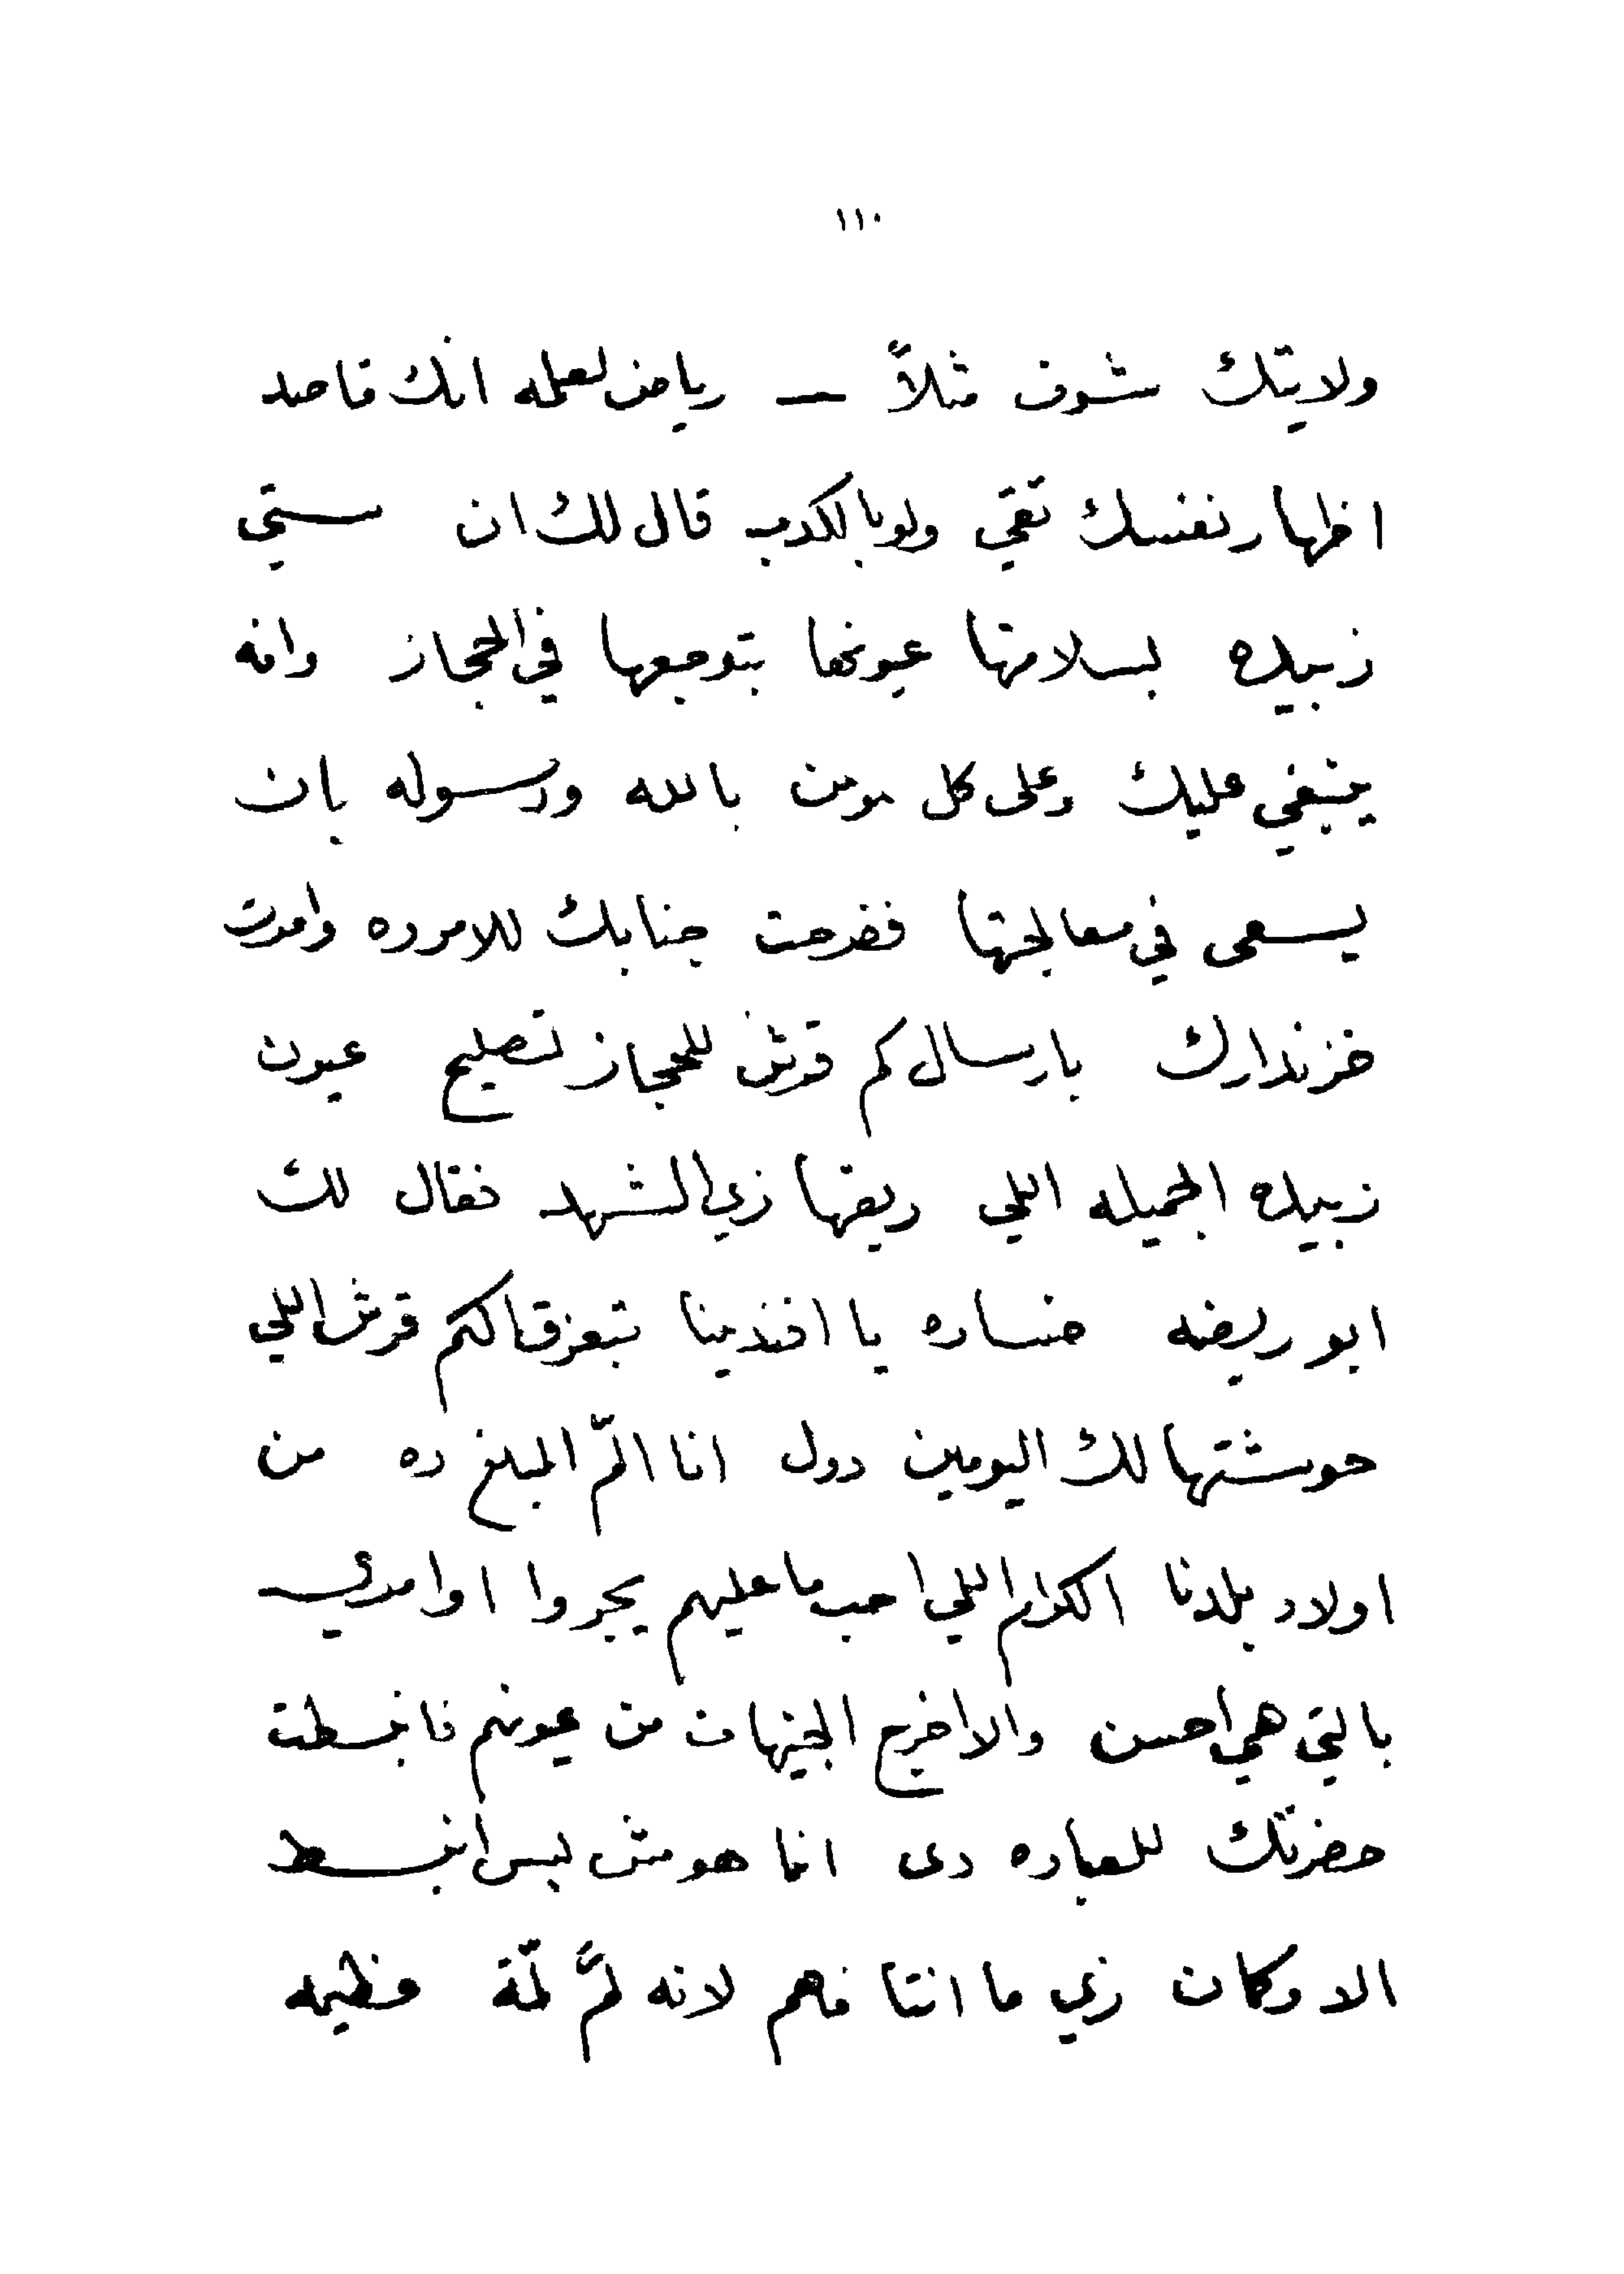 ١١٠
ولايتك شوف مثلاً — رياض لعلمه انك قاصد
اظهار نفسك تقي ولو بالكدب قال لك ان ستي
زبيده بسلامتها عيونها بتوجعها في الحجاز وانه
ينبغي عليك وعلى كل مومن بالله ورسوله بان
يسعى في معالجتها ففرحت جنابك للامر ده وامرت
خزندارك بارسال كم قرش للحجاز لتصليح عيون
زبيده الجميله اللي ريقها زي الشهد فقال لك
ابو ريضه خساره يا افندينا تبعزقا لكم قرش اللي
حوشتها لك اليومين دول انا المّ المبلغ ده من
اولاد بلدنا الكرام اللي احب ما عليهم يجروا اوامري
بالتي هي احسن والا اخرج الجنيهات من عيونهم فانبسطت
حضرتك للعباره دى انما هو مش بس انبسط
الا وكان زي ما انتا فاهم لانه لمَّ لمّة عظيمه